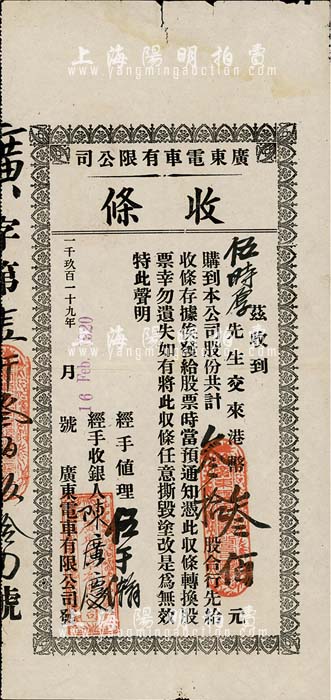 上海陽明拍賣
www.yangmingauction.com
廣東電車有限公司
收條
茲收到
伍時厚先生交來港幣叁佰元
購到本公司股份共計叁拾股合行先給
收條存據俟發給股票時當預通知憑此收條轉換股
票幸勿遺失如有將此收條任意撕毀塗改是爲無效
特此聲明
經手値理伍于瀚
經手收銀人陳廣慶
一千玖百一十九年 月 號 廣東電車有限公司發
16 Feb 1920
廣字第壹仟叁百
號